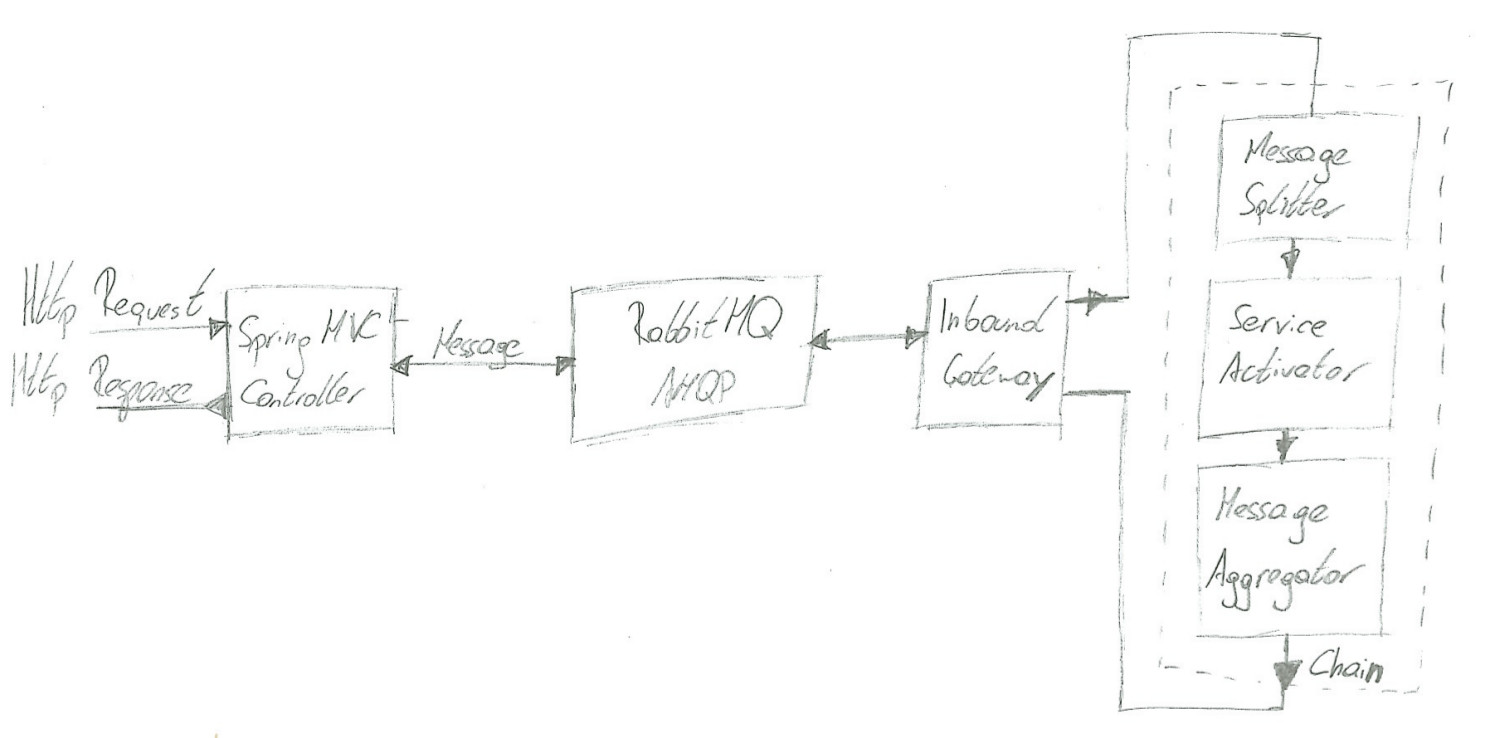 Http Request
Http Response
Spring MVC
Controller
Message
RabbitMQ
AMQP
Inbound
Gateway
Message
Splitter
Service
Activator
Message
Aggregator
Chain